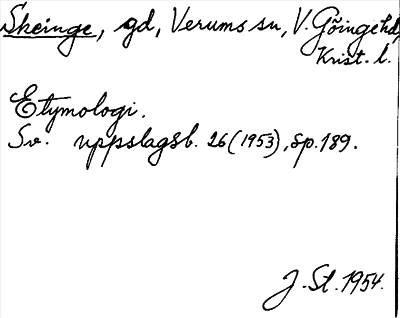 Skeinge, gd, Verums sn, V. Göinge hd,
Krist. l.
Etymologi.
Sv. uppslagsb. 26 (1953), sp. 189.
J. St. 1954.